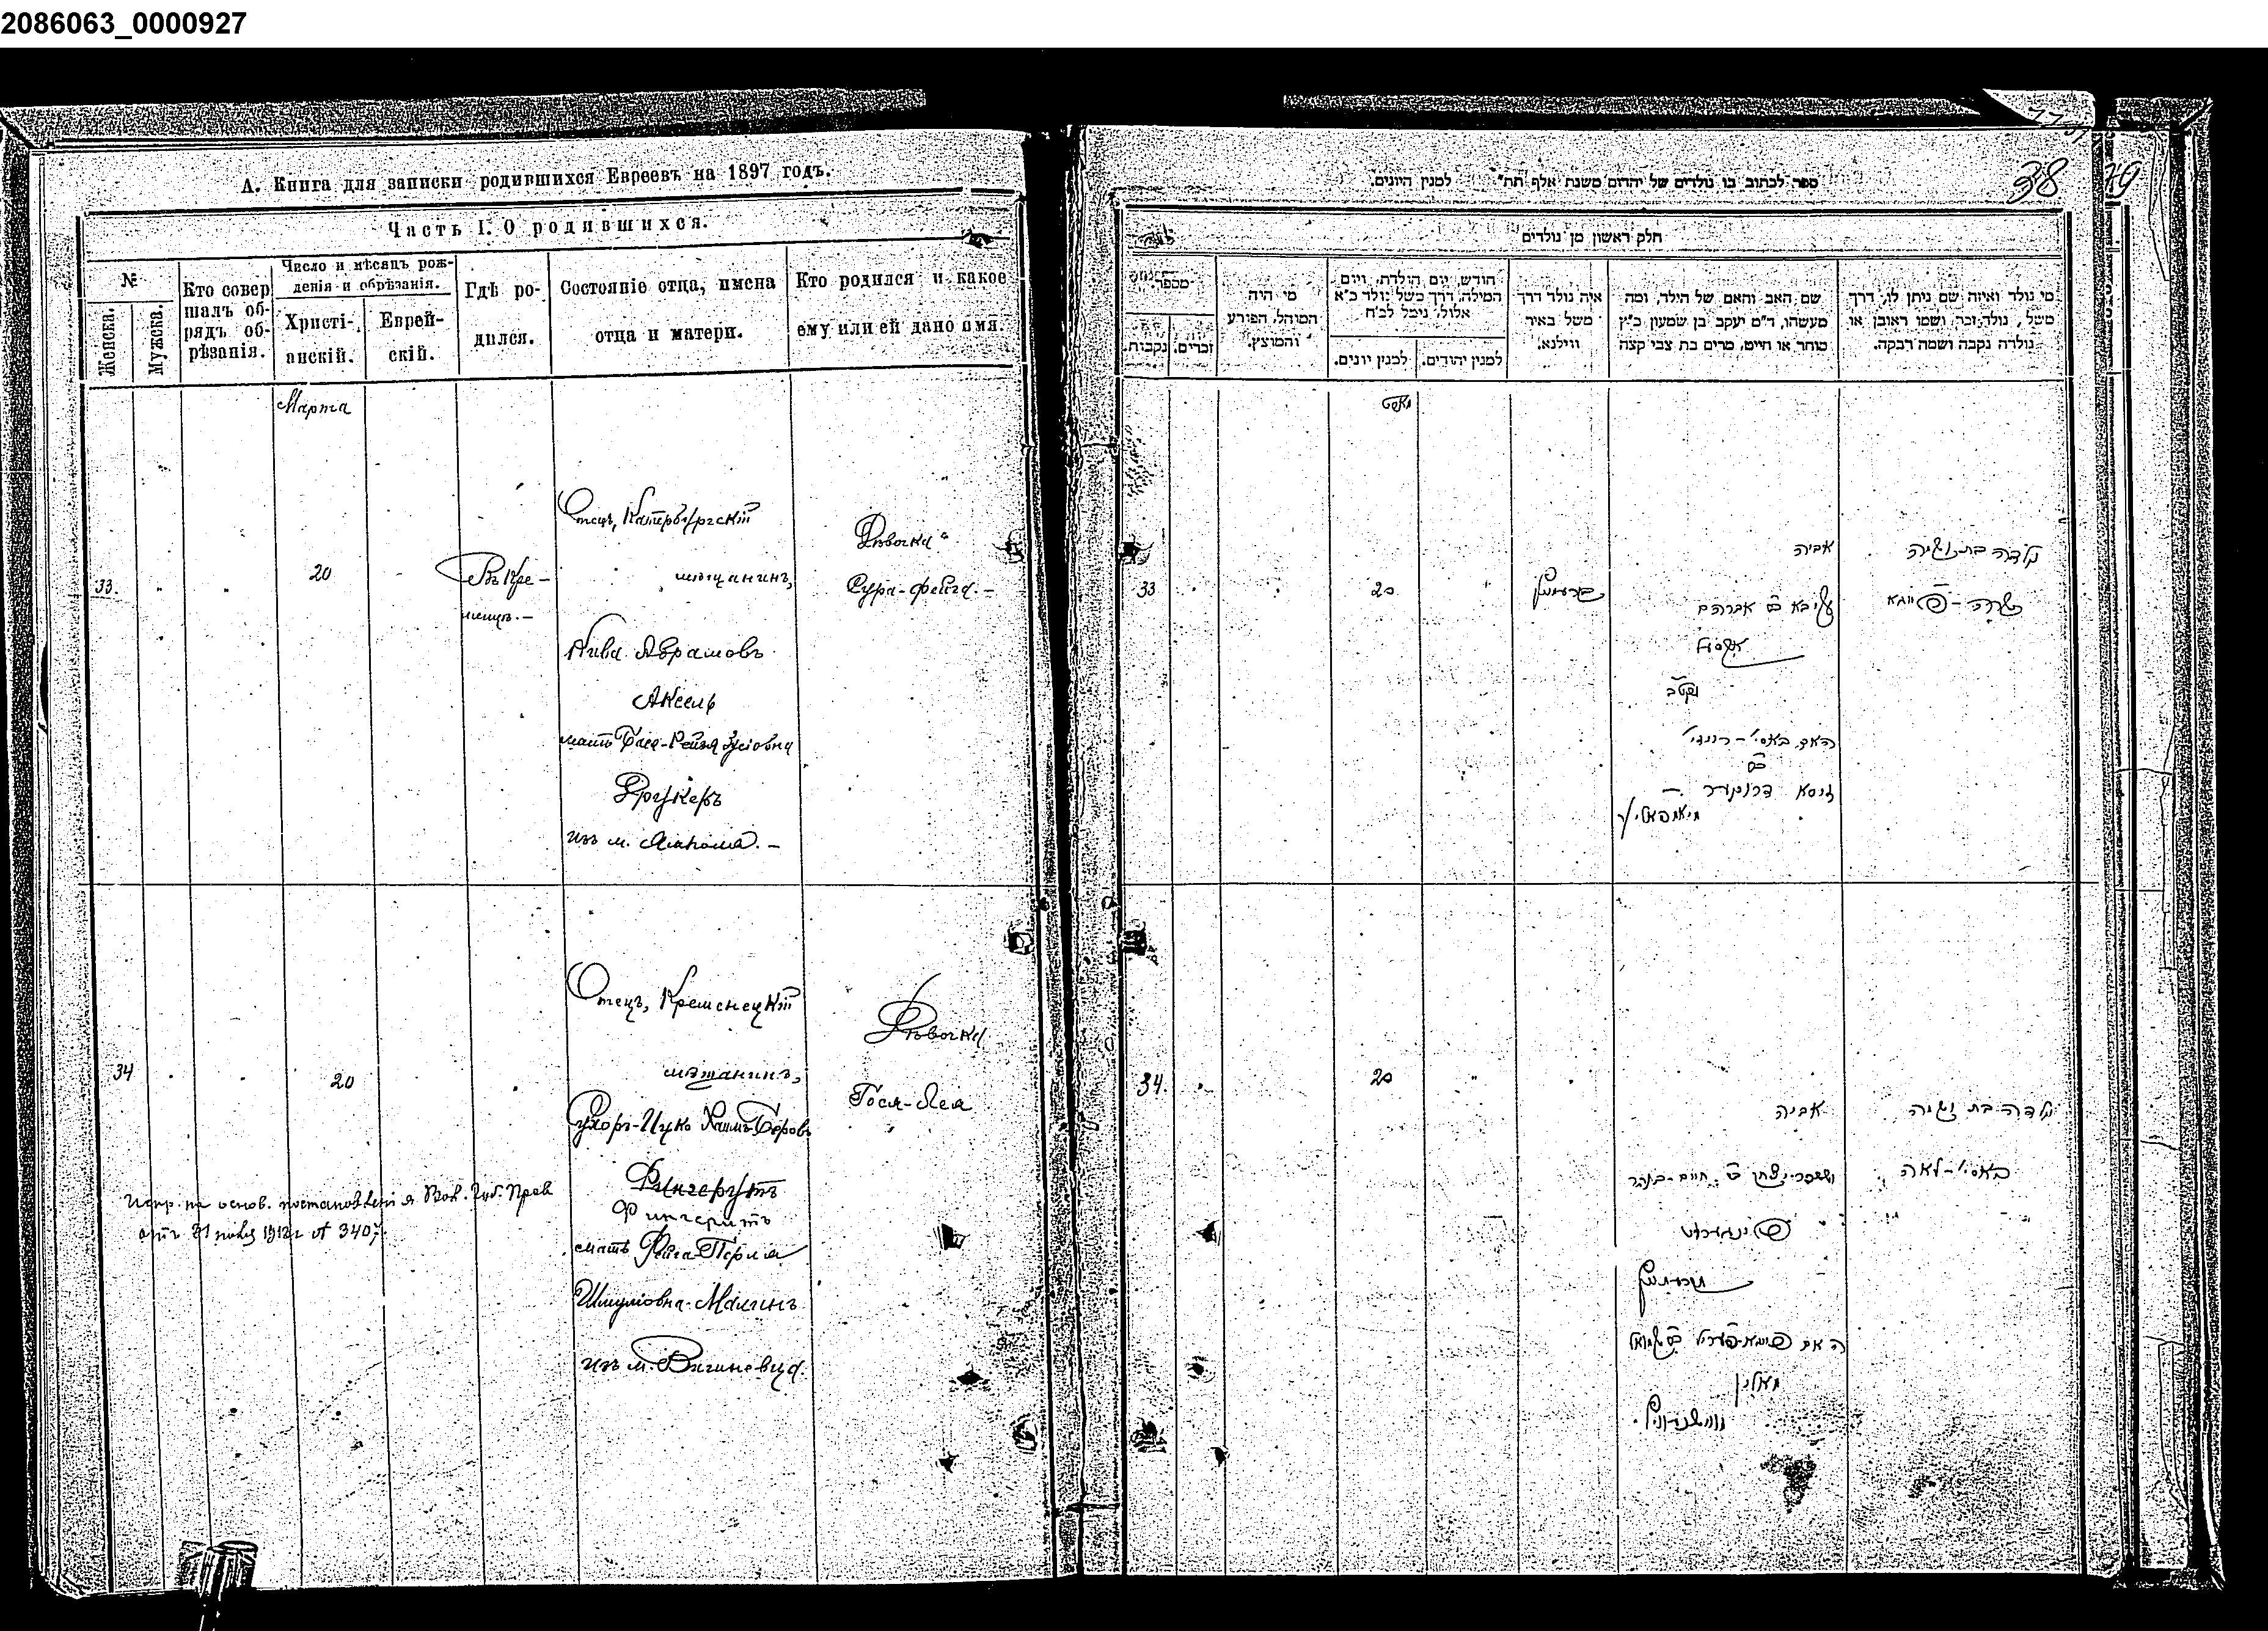 2086063_0000927
А. Книга для записки родившихся Евреевъ на 1897 годъ.
Часть I. О родившихся.
№
Женска.
Мужска.
Кто совер
шалъ об-
рядъ об-
рѣзанія.
Число и мѣсяцъ рож-
денія и обрѣзанія.
Христі-
анскій.
Еврей-
скій.
Гдѣ ро-
дился.
Состояніе отца, имена
отца и матери.
Кто родился и какое
ему или ей дано имя.
Марта
33.
20
Въ Кре-
менцѣ.-
Отецъ, Катербургскій
мѣщанинъ,
Кива Абрамовъ
Аксель
мать Бася-Рейзя Зусіовна
Друкеръ
изъ м. Ямполя.-
Дѣвочка
Сура-Фейга.-
34
20
Отецъ, Кременецкій
мѣщанинъ,
Хаимъ-Беровъ
Фингерутъ
Фингеритъ
мать Фейга-Перля
Шмуліовна Малинъ
изъ м. Вишневца.
Дѣвочка
Бася-Лея
Испр. на основ. постановленія Вол. Губ. Прав
отъ 31 1912 г № 3407.
38
ספר לכתוב בו נולדים של יהודים משנת אלף תת" למנין היונים.
חלק ראשון מן נולדים
נקבות.
זכרים.
מי היה
המוהל, הפורע
והמוצץ.
חודש, יום הולדת, ויום
המילה, דרך משל נולד כ"א
אלול, נימל לכ"ח
למנין יונים.
למנין יהודים.
איה נולד דרך
משל באיר
ווילנא.
שם האב והאם של הילד, ומה
מעשהו, ד"מ יעקב בן שמעון כ"ץ
סוחר או חייט, מרים בת צבי קצה
מי נולד ואיזה שם ניתן לו, דרך
משל, נולד זכר ושמו ראובן או
נולדה נקבה ושמה רבקה.
33
20
אביה
עקיבא ב אברהם
אקסל
האם באסי-רייזי
ב
זוסא דרוקער
יאמפאליר
נולדה בת זוגיה
שרה-פייגא
34.
20
אביה
פינגערוט
האם פייגא-פערל ב שמואל
מאלין
נולדה בת זוגיה
באסי-לאה